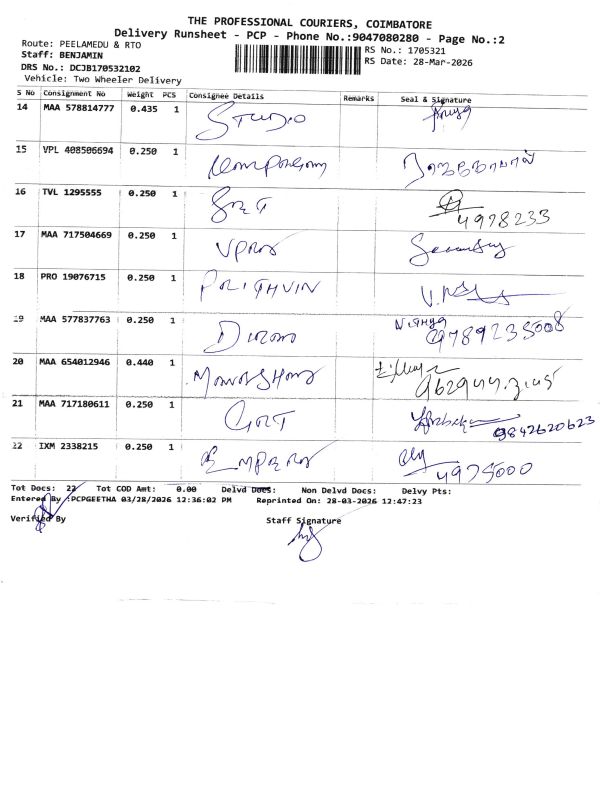 THE PROFESSIONAL COURIERS, COIMBATORE
Delivery Runsheet - PCP - Phone No.:9047080280 - Page No.:2
Route: PEELAMEDU & RTO
RS No.: 1705321
Staff: BENJAMIN
RS Date: 28-Mar-2026
DRS No.: DCJB170532102
Vehicle: Two Wheeler Delivery
S No Consignment No Weight PCS Consignee Details Remarks Seal & Signature
14 MAA 578814777 0.435 1 STUDIO
15 VPL 408506694 0.250 1
16 TVL 1295555 0.250 1 4978233
17 MAA 717504669 0.250 1
18 PRO 19076715 0.250 1 PRITHVIN
19 MAA 577837763 0.250 1 9789235008
20 MAA 654012946 0.440 1
21 MAA 717180611 0.250 1 GRT 9842620623
22 IXM 2338215 0.250 1 4975000
Tot Docs: 22 Tot COD Amt: 0.00 Delvd Docs: Non Delvd Docs: Delvy Pts:
Entered By :PCPGEETHA 03/28/2026 12:36:02 PM Reprinted On: 28-03-2026 12:47:23
Verified By
Staff Signature